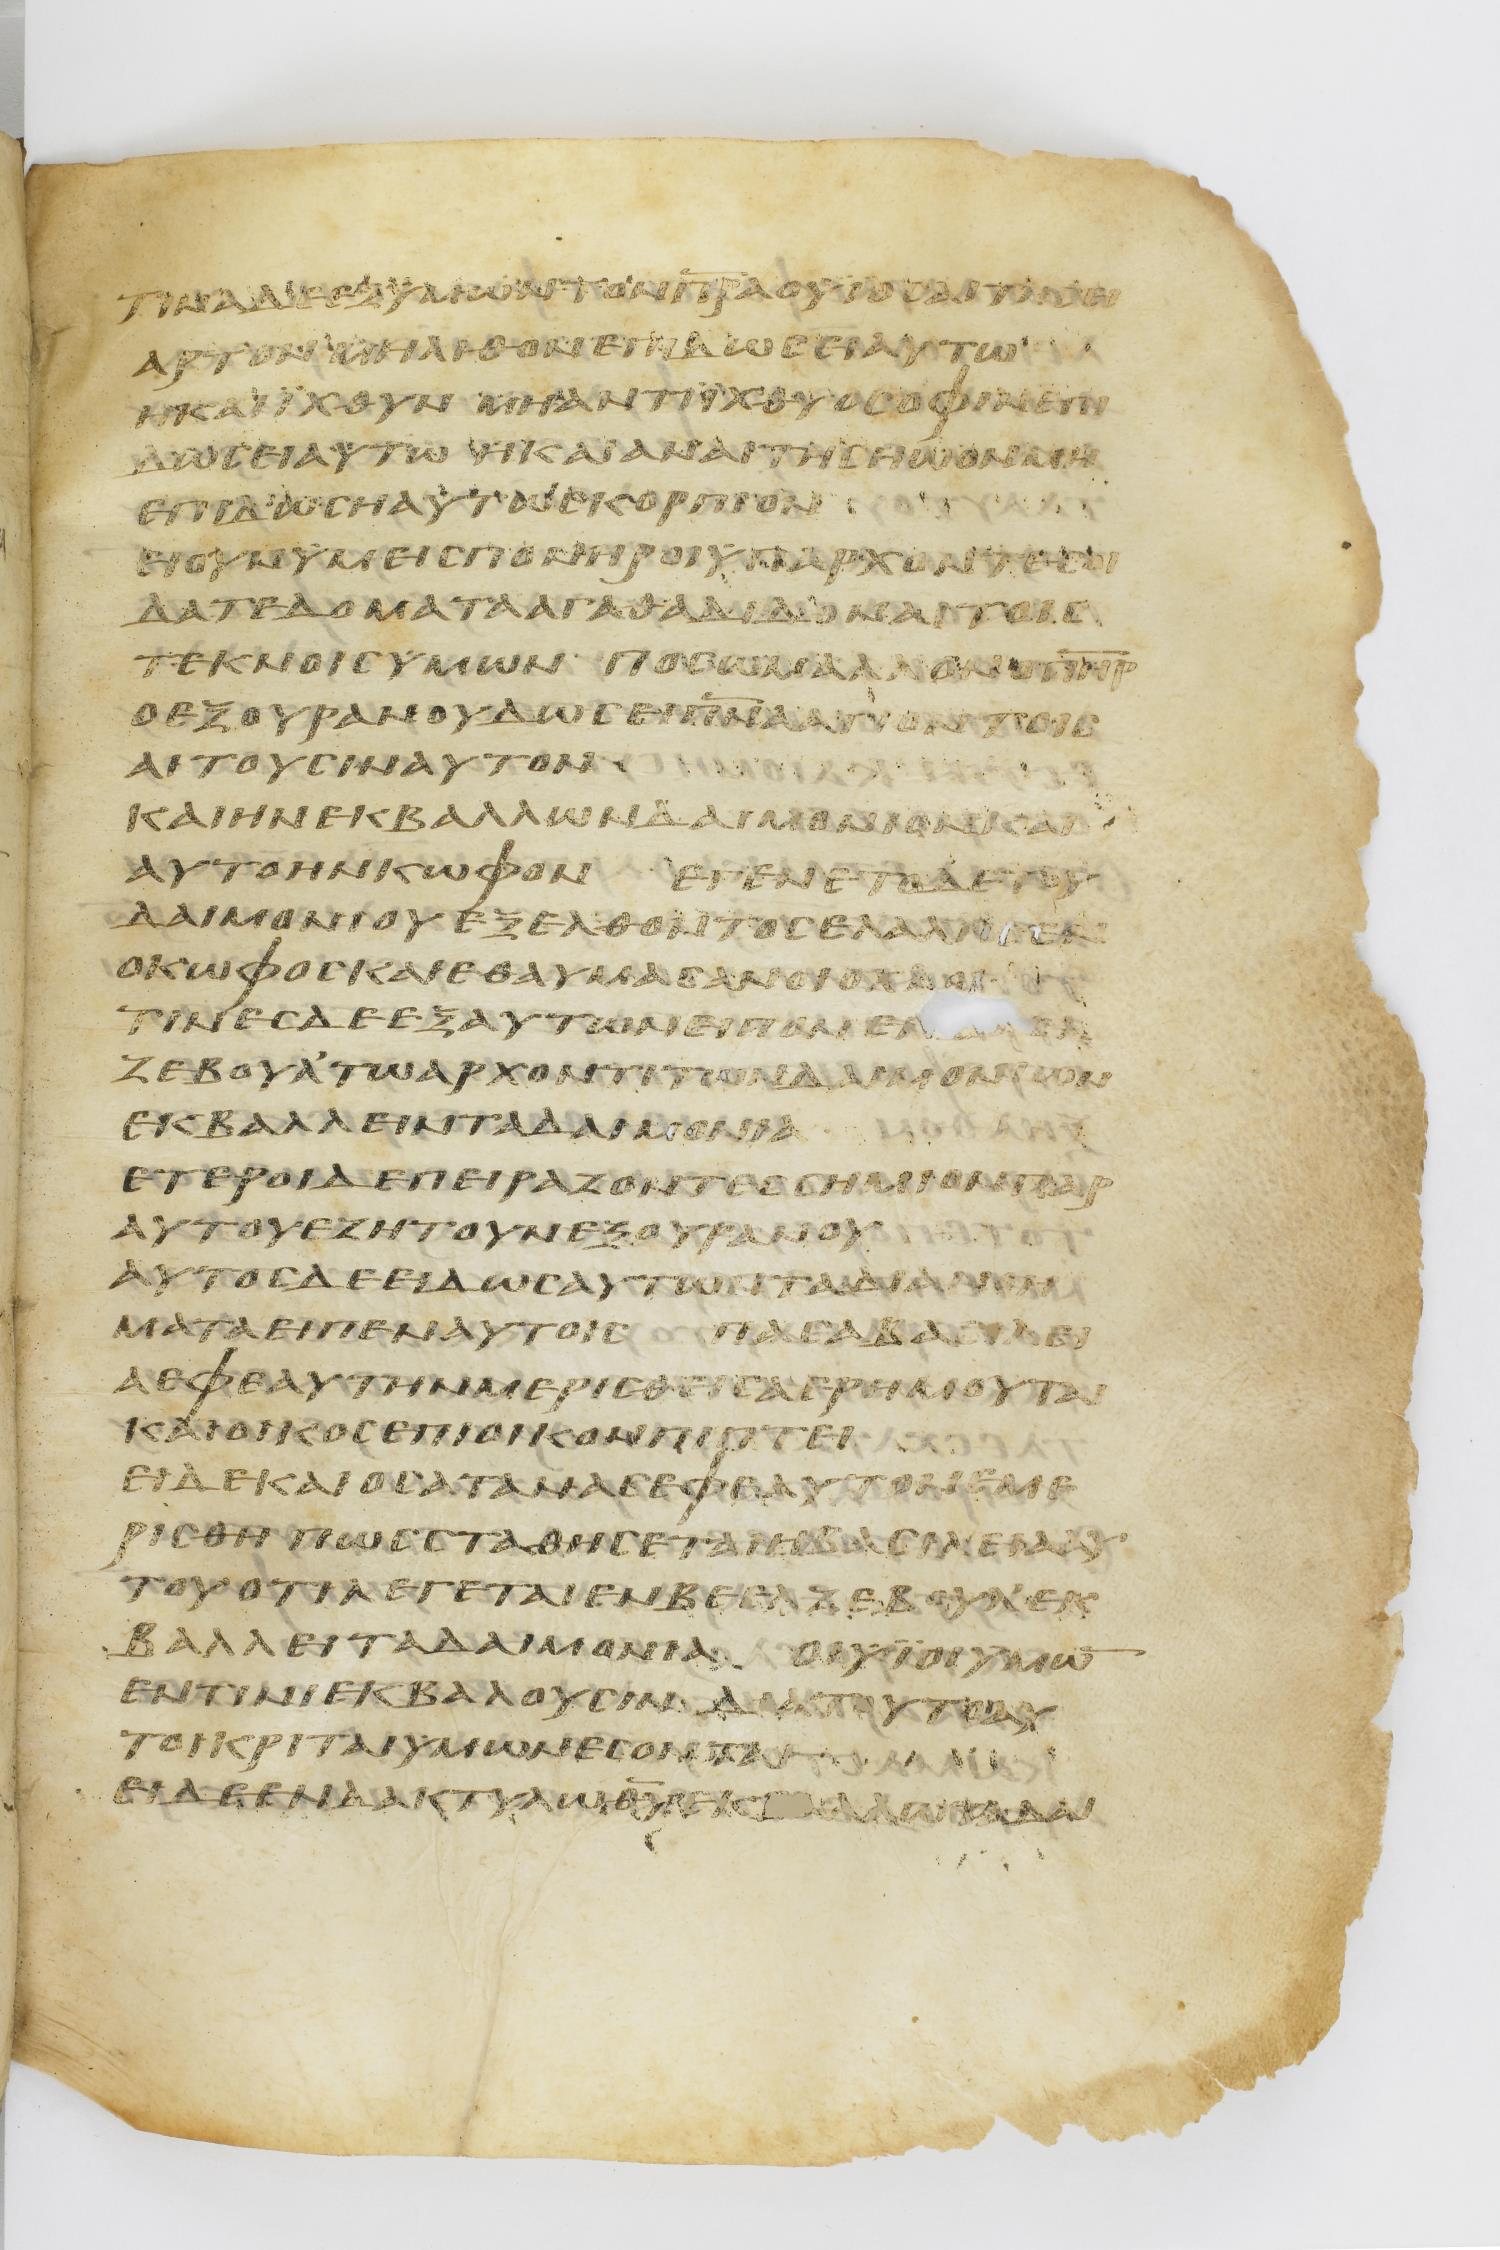 ΤΙΝΑΔΕΕΞΥΜΩΝΤΟΝΠΡΑΟΥΙΟϹΑΙΤΗϹΕΙ
ΑΡΤΟΝ ΜΗΛΙΘΟΝΕΠΙΔΩϹΕΙΑΥΤΩ
ΗΚΑΙΙΧΘΥΝ ΜΗΑΝΤΙΙΧΘΥΟϹΟΦΙΝΕΠΙ
ΔΩϹΕΙΑΥΤΩ ΗΚΑΙΑΝΑΙΤΗϹΗΩΟΝΜΗ
ΕΠΙΔΩϹΗΑΥΤΩϹΚΟΡΠΙΟΝ
ΕΙΟΥΝΥΜΕΙϹΠΟΝΗΡΟΙΥΠΑΡΧΟΝΤΕϹΟΙ
ΔΑΤΕΔΟΜΑΤΑΑΓΑΘΑΔΙΔΟΝΑΙΤΟΙϹ
ΤΕΚΝΟΙϹΥΜΩΝ ΠΟϹΩΜΑΛΛΟΝΟΠΗΡ
ΟΕΞΟΥΡΑΝΟΥΔΩϹΕΙΠΝΑΑΓΙΟΝΤΟΙϹ
ΑΙΤΟΥϹΙΝΑΥΤΟΝ
ΚΑΙΗΝΕΚΒΑΛΛΩΝΔΑΙΜΟΝΙΟΝΚΑΙ
ΑΥΤΟΗΝΚΩΦΟΝ ΕΓΕΝΕΤΟΔΕΤΟΥ
ΔΑΙΜΟΝΙΟΥΕΞΕΛΘΟΝΤΟϹΕΛΑΛΗϹΕΝ
ΟΚΩΦΟϹΚΑΙΕΘΑΥΜΑϹΑΝΟΙΟΧΛΟΙ
ΤΙΝΕϹΔΕΕΞΑΥΤΩΝΕΙΠΟΝΕΝ
ΖΕΒΟΥΛΤΩΑΡΧΟΝΤΙΤΩΝΔΑΙΜΟΝΙΩΝ
ΕΚΒΑΛΛΕΙΝΤΑΔΑΙΜΟΝΙΑ
ΕΤΕΡΟΙΔΕΠΕΙΡΑΖΟΝΤΕϹϹΗΜΙΟΝΠΑΡ
ΑΥΤΟΥΕΖΗΤΟΥΝΕΞΟΥΡΑΝΟΥ
ΑΥΤΟϹΔΕΕΙΔΩϹΑΥΤΩΝΤΑΔΙΑΝΟΗ
ΜΑΤΑΕΙΠΕΝΑΥΤΟΙϹ ΠΑϹΑΒΑϹΙΛΕΙ
ΑΕΦΕΑΥΤΗΝΜΕΡΙϹΘΕΙϹΑΕΡΗΜΟΥΤΑΙ
ΚΑΙΟΙΚΟϹΕΠΙΟΙΚΟΝΠΙΠΤΕΙ
ΕΙΔΕΚΑΙΟϹΑΤΑΝΑϹΕΦΕΑΥΤΟΝΕΜΕ
ΡΙϹΘΗ ΠΩϹϹΤΑΘΗϹΕΤΑΙΗΒΑϹΙΛΕΙΑΑΥ
ΤΟΥΟΤΙΛΕΓΕΤΑΙΕΝΒΕΕΛΖΕΒΟΥΛΕΚ
ΒΑΛΛΕΙΤΑΔΑΙΜΟΝΙΑ ΟΙΥΙΟΙΥΜΩ
ΕΝΤΙΝΙΕΚΒΑΛΟΥϹΙΝ ΔΙΑΤΟΥΤΟΑΥ
ΤΟΙΚΡΙΤΑΙΥΜΩΝΕϹΟΝΤΑΙ
ΕΙΔΕΕΝΔΑΚΤΥΛΩΘΥ